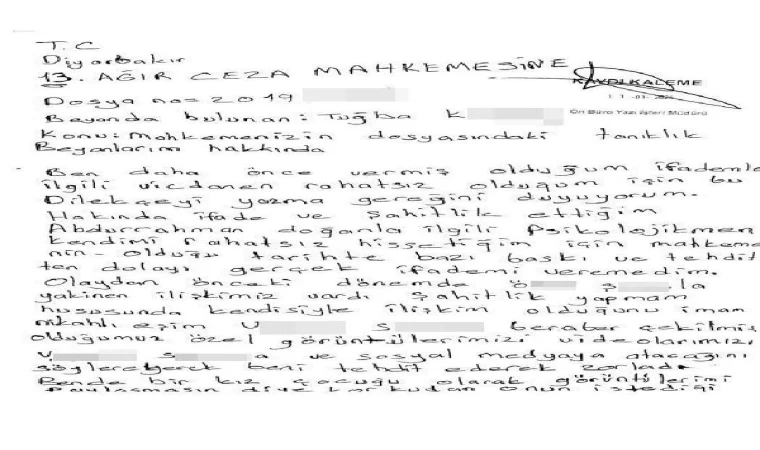 T.C
Diyarbakır
13. AĞIR CEZA MAHKEMESİNE
KAYDI KALEME
Ön Büro Yazı İşleri Müdürü
Dosya no: 2019
Beyanda bulunan: Tuğba K
Konu: Mahkemenizin dosyasındaki tanıklık
Beyanlarım hakkında
Ben daha önce vermiş olduğum ifademle
ilgili vicdanen rahatsız olduğum için bu
Dilekçeyi yazma gereğini duyuyorum.
Hakında ifade ve şahitlik ettiğim
Abdurrahman doğanla ilgili Psikolejikmen
kendimi rahatsız hissettiğim için mahkeme
nin olduğu tarihte bazı baskı ve tehdit
ten dolayı gerçek ifademi veremedim.
Olaydan önceki dönemde Ö Ş la
yakinen ilişkimiz vardı şahitlik yapmam
hususunda kendisiyle ilişkim olduğunu imam
nikahlı eşim V S beraber çekilmiş
olduğumuz özel görüntülerimizi videolarımızı
V S a ve sosyal medyaya atacağını
söyleyerek beni tehdit ederek zorladı
Bende bir kız çocuğu olarak görüntülerimi
Paylaşmasın diye korkudan onun istediği